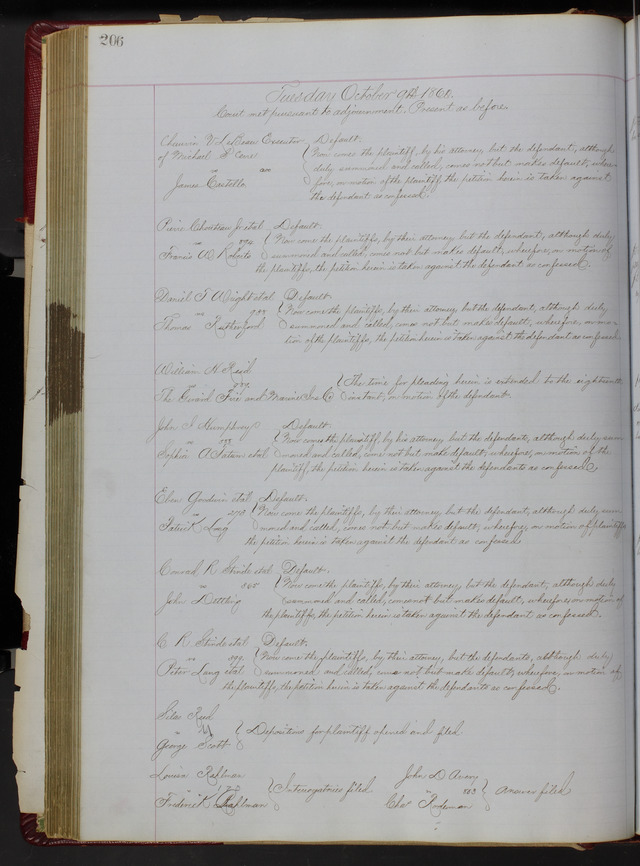 206
Tuesday October 9th 1860.
Court met pursuant to adjournment. Present as before
V. LeBeau Executor Default.
of Michael S. Cerre Now comes the plaintiff, by his attorney, but the defendant, although
vs duly summoned and called, comes not but makes default, where-
James Castello fore, on motion of the plaintiff, the petition herein is taken against
the defendant as confessed.
Pierre Chouteau Jr et al Default.
vs Now come the plaintiffs, by their attorney, but the defendant, although duly
Francis A Roberts summoned and called, comes not but makes default, wherefore, on motion of
the plaintiffs, the petition herein is taken against the defendant as confessed.
Daniel T. Wright et al Default
vs Now come the plaintiffs, by their attorney, but the defendant, although duly
Thomas Rutherford summoned and called, comes not but makes default, wherefore, on mo-
tion of the plaintiffs, the petition herein is taken against the defendant as confessed.
William H. Reid
vs The time for pleading herein is extended to the eighteenth
The Girard Fire and Marine Ins Co instant, on motion of the defendant.
John I Humphrey Default
vs Now comes the plaintiff, by his attorney but the defendants, although duly sum-
Sophia A Tatum et al moned and called, come not but make default, wherefore, on motion of the
plaintiff, the petition herein is taken against the defendants as confessed
Eben Goodwin et al Default.
vs Now come the plaintiffs, by their attorney, but the defendant, although duly sum-
Patrick Long moned and called, comes not but makes default, wherefore, on motion of plaintiffs
the petition herein is taken against the defendant as confessed
Conrad R Stinde et al Default.
vs 165 Now come the plaintiffs, by their attorney, but the defendant, although duly
John summoned and called, comes not but makes default, wherefore, on motion of
the plaintiffs, the petition herein is taken against the defendant as confessed.
C R Stinde et al Default.
vs Now come the plaintiffs, by their attorney, but the defendants, although duly
Peter Lang et al summoned and called, come not but make default, wherefore, on motion of
the plaintiffs, the petition herein is taken against the defendants as confessed.
Silas Reed
vs Depositions for plaintiff opened and filed
George Scott
Louisa Rahlman John D Avery
vs Interrogatories filed vs Answer filed
Frederick Rahlman Chas Rodeman